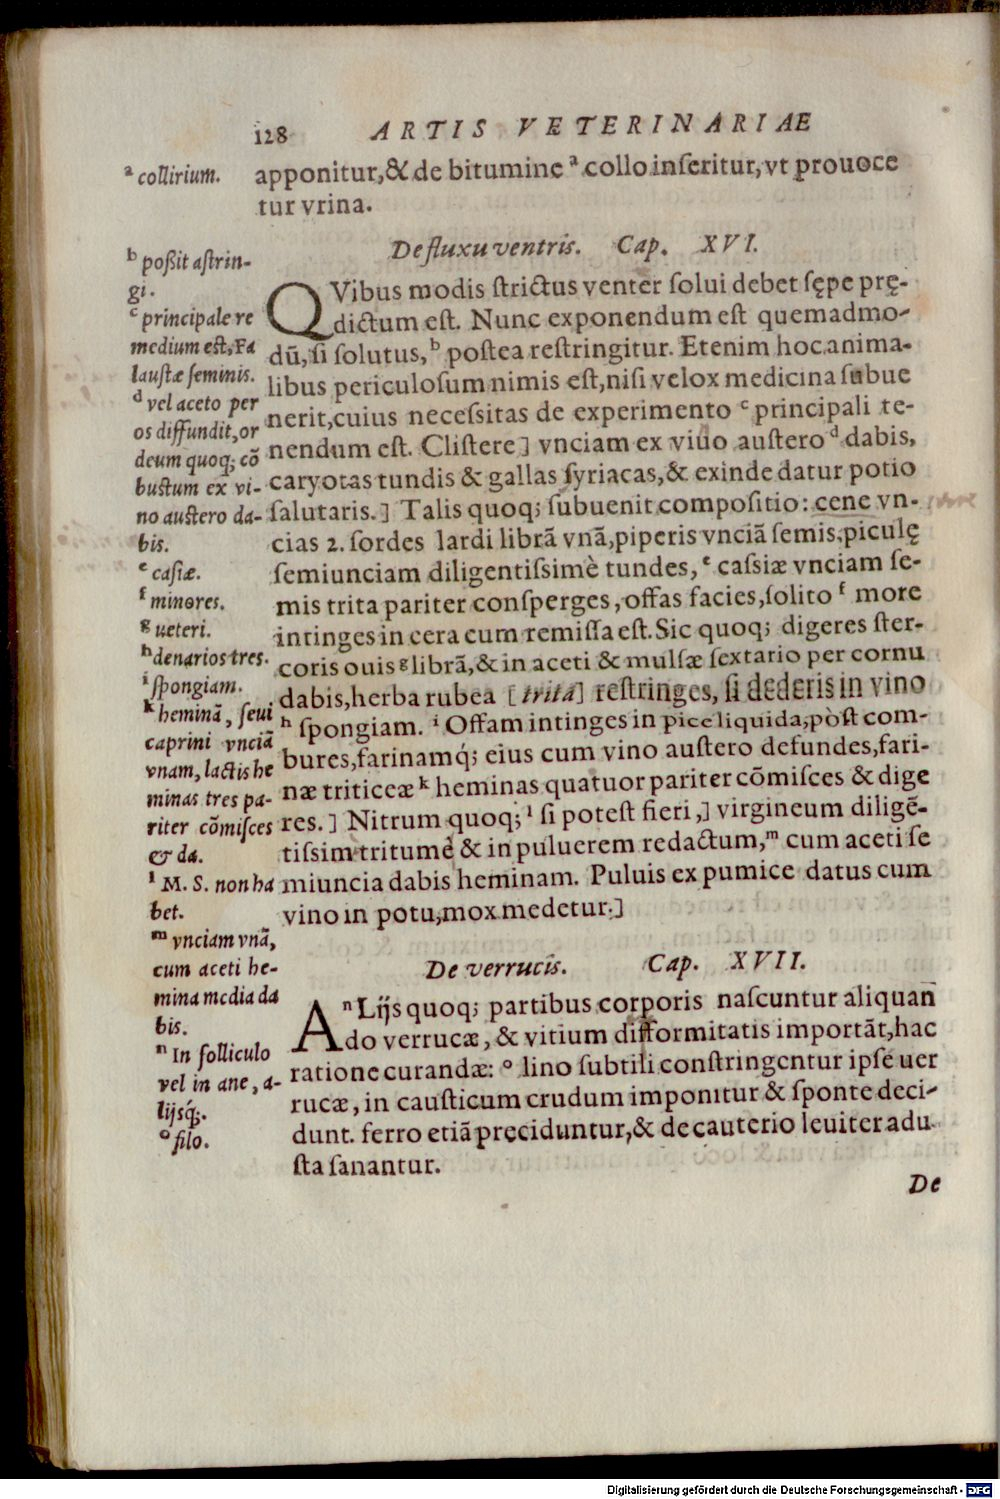 128 ARTIS VETERINARIAE
apponitur,&de bitumine ᵃ collo inſeritur, vt prouoce
tur vrina.
De fluxu ventris. Cap. XVI.
QVibus modis ſtrictus venter ſolui debet ſępe prę-
dictum eſt. Nunc exponendum eſt quemadmo-
dū, ſi ſolutus, ᵇ poſtea reſtringitur. Etenim hoc anima-
libus periculoſum nimis eſt, niſi velox medicina ſubue
nerit, cuius neceſsitas de experimento ᶜ principali te-
nendum eſt. Cliſtere] vnciam ex viuo auſtero ᵈ dabis,
caryotas tundis & gallas ſyriacas, & exinde datur potio
ſalutaris.] Talis quoq; ſubuenit compoſitio: cene vn-
cias 2. ſordes lardi librā vnā, piperis vnciā ſemis, piculę
ſemiunciam diligentiſsimè tundes, ᵉ caſsiæ vnciam ſe-
mis trita pariter conſperges, offas facies, ſolito ᶠ more
intinges in cera cum remiſſa eſt. Sic quoq; digeres ſter-
coris ouis ᵍ librā, & in aceti & mulſæ ſextario per cornu
dabis, herba rubea [trita] reſtringes, ſi dederis in vino
ʰ ſpongiam. ⁱ Offam intinges in pice liquida, pòſt com-
bures, farinamq́; eius cum vino auſtero defundes, fari-
næ triticeæ ᵏ heminas quatuor pariter cōmiſces & dige
res.] Nitrum quoq; ˡ ſi poteſt fieri,] virgineum diligē-
tiſsim tritumè & in puluerem redactum, ᵐ cum aceti ſe
miuncia dabis heminam. Puluis ex pumice datus cum
vino in potu, mox medetur.]
De verrucis. Cap. XVII.
A ⁿ Lijs quoq; partibus corporis naſcuntur aliquan̄
do verrucæ, & vitium difformitatis importāt, hac
ratione curandæ: ᵒ lino ſubtili conſtringentur ipſe uer
rucæ, in cauſticum crudum imponitur & ſponte deci-
dunt. ferro etiā pręciduntur, & de cauterio leuiter adu
ſta ſanantur.
De
ᵃ collirium.
ᵇ poßit aſtrin-
gi.
ᶜ principale re
medium eſt, Fa
lauſtæ ſeminis.
ᵈ vel aceto per
os diffundit, or
deum quoq; cō
buſtum ex vi-
no auſtero da-
bis.
ᵉ caſiæ.
ᶠ minores.
ᵍ ueteri.
ʰ denarios tres.
ⁱ ſpongiam.
ᵏ heminā, ſeui
caprini vnciā
vnam, lactis he
minas tres pa-
riter cōmiſces
& da.
ˡ M. S. non ha
bet.
ᵐ vnciam vnā,
cum aceti he-
mina media da
bis.
ⁿ In folliculo
vel in ane, a-
lijsq́;.
ᵒ filo.
Digitalisierung gefördert durch die Deutsche Forschungsgemeinschaft - DFG